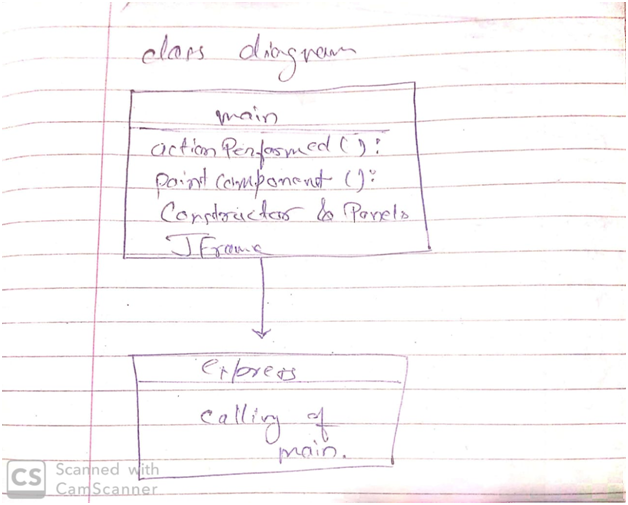 class diagram
main
action Performed ():
paint component ():
Constructor & Panels
JFrame
express
calling of
main.
CS Scanned with
CamScanner